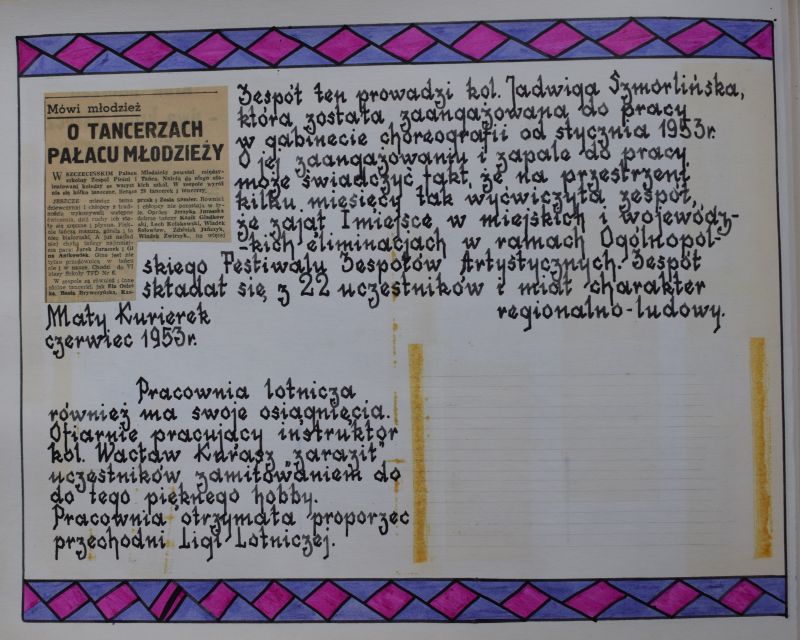 Mówi młodzież
O TANCERZACH
PAŁACU MŁODZIEŻY
W SZCZECIŃSKIM Pałacu
Młodzieży powstał między-
szkolny Zespół Pieśni i
Tańca.
Zespół ten prowadzi kol. Jadwiga Szmorlińska,
która została zaangażowana do pracy
w gabinecie choreografii od stycznia 1953r.
O jej zaangażowaniu i zapale do pracy
może świadczyć fakt, że na przestrzeni
kilku miesięcy tak wyćwiczyła zespół,
że zajął I miejsce w miejskich i wojewódz-
-kich eliminacjach w ramach Ogólnopol-
skiego Festiwalu Zespołów Artystycznych. Zespół
składał się z 22 uczestników i miał charakter
regionalno-ludowy.
Mały Kurierek
czerwiec 1953r.
Pracownia lotnicza
również ma swoje osiągnięcia.
Ofiarnie pracujący instruktor
kol. Wacław Kurasz „zaraził”
uczestników zamiłowaniem do
do tego pięknego hobby.
Pracownia otrzymała proporzec
przechodni Ligi Lotniczej.